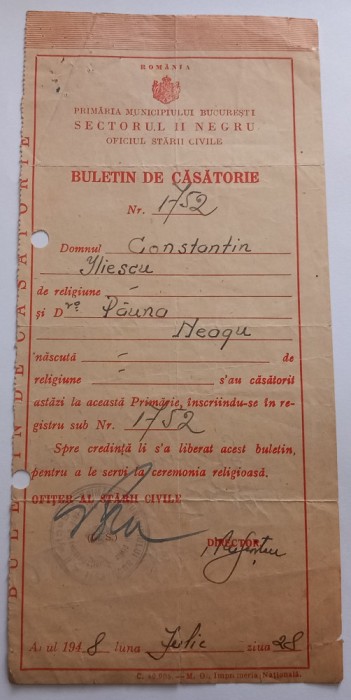 ROMÂNIA
PRIMĂRIA MUNICIPIULUI BUCUREȘTI
SECTORUL II NEGRU
OFICIUL STĂRII CIVILE
BULETIN DE CĂSĂTORIE
Nr. 1752
Domnul Constantin
Iliescu
de religiune -
și D ra Păuna
Neagu
născută - de
religiune - s'au căsătorit
astăzi la această Primărie, înscriindu-se în re-
gistru sub Nr. 1752
Spre credință li s'a liberat acest buletin,
pentru a le servi la ceremonia religioasă.
OFIȚER AL STĂRII CIVILE
DIRECTOR
Anul 194 8 luna Iulie ziua 28
M. O., Imprimeria Națională.
BULETIN DE CĂSĂTORIE